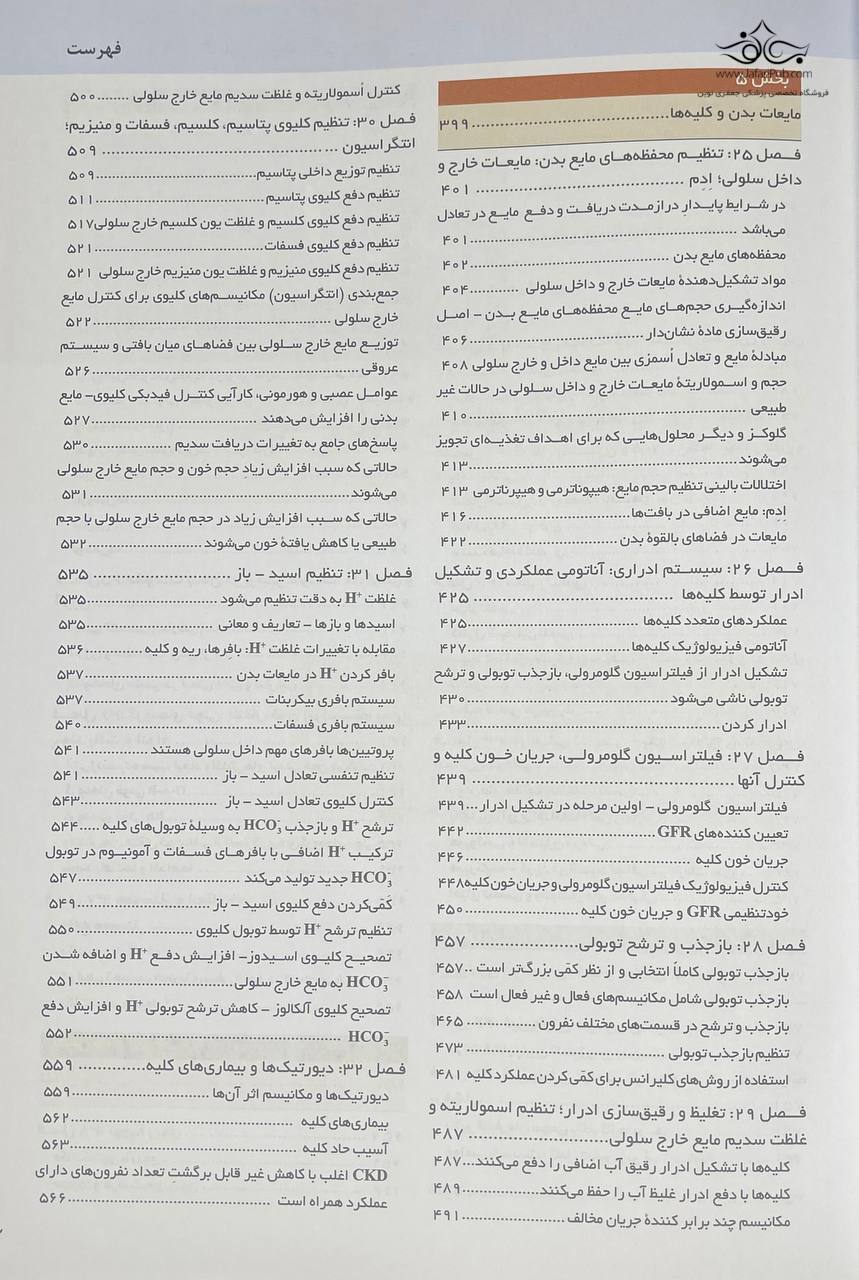 فهرست
www.JafariPub.com
فروشگاه تخصصی پزشکی جعفری نوین
بخش ۵
مایعات بدن و کلیه‌ها....................................۳۹۹
فصل ۲۵: تنظیم محفظه‌های مایع بدن: مایعات خارج و
داخل سلولی؛ اِدِم .................................... ۴۰۱
در شرایط پایدارِ درازمدت دریافت و دفع مایع در تعادل
می‌باشد ....................................۴۰۱
محفظه‌های مایع بدن ....................................۴۰۲
مواد تشکیل‌دهندهٔ مایعات خارج و داخل سلولی ............۴۰۴
اندازه‌گیری حجم‌های مایع محفظه‌های مایع بدن - اصل
رقیق‌سازی مادهٔ نشان‌دار ....................................۴۰۶
مبادلهٔ مایع و تعادل اُسمزی بین مایع داخل و خارج سلولی ۴۰۸
حجم و اسمولاریتهٔ مایعات خارج و داخل سلولی در حالات غیر
طبیعی ....................................۴۱۰
گلوکز و دیگر محلول‌هایی که برای اهداف تغذیه‌ای تجویز
می‌شوند....................................۴۱۳
اختلالات بالینی تنظیم حجم مایع: هیپوناترمی و هیپرناترمی ۴۱۳
اِدِم: مایع اضافی در بافت‌ها....................................۴۱۶
مایعات در فضاهای بالقوهٔ بدن....................................۴۲۲
فصل ۲۶: سیستم ادراری: آناتومی عملکردی و تشکیل
ادرار توسط کلیه‌ها .................................... ۴۲۵
عملکردهای متعدد کلیه‌ها ....................................۴۲۵
آناتومی فیزیولوژیک کلیه‌ها....................................۴۲۷
تشکیل ادرار از فیلتراسیون گلومرولی، بازجذب توبولی و ترشح
توبولی ناشی می‌شود ....................................۴۳۰
ادرار کردن....................................۴۳۳
فصل ۲۷: فیلتراسیون گلومرولی، جریان خون کلیه و
کنترل آنها .................................... ۴۳۹
فیلتراسیون گلومرولی - اولین مرحله در تشکیل ادرار...۴۳۹
تعیین کننده‌های GFR....................................۴۴۲
جریان خون کلیه ....................................۴۴۶
کنترل فیزیولوژیک فیلتراسیون گلومرولی و جریان خون کلیه۴۴۸
خودتنظیمی GFR و جریان خون کلیه ....................۴۵۰
فصل ۲۸: بازجذب و ترشح توبولی.................... ۴۵۷
بازجذب توبولی کاملاً انتخابی و از نظر کمّی بزرگ‌تر است ..۴۵۷
بازجذب توبولی شامل مکانیسم‌های فعال و غیر فعال است ۴۵۸
بازجذب و ترشح در قسمت‌های مختلف نفرون................۴۶۵
تنظیم بازجذب توبولی ....................................۴۷۳
استفاده از روش‌های کلیرانس برای کمّی کردن عملکرد کلیه ۴۸۱
فصل ۲۹: تغلیظ و رقیق‌سازی ادرار؛ تنظیم اسمولاریته و
غلظت سدیم مایع خارج سلولی.................... ۴۸۷
کلیه‌ها با تشکیل ادرار رقیق آب اضافی را دفع می‌کنند...۴۸۷
کلیه‌ها با دفع ادرار غلیظ آب را حفظ می‌کنند...............۴۸۹
مکانیسم چند برابر کنندهٔ جریان مخالف....................۴۹۱
کنترل اُسمولاریته و غلظت سدیم مایع خارج سلولی ........۵۰۰
فصل ۳۰: تنظیم کلیوی پتاسیم، کلسیم، فسفات و منیزیم؛
انتگراسیون .................................... ۵۰۹
تنظیم توزیع داخلی پتاسیم....................................۵۰۹
تنظیم دفع کلیوی پتاسیم ....................................۵۱۱
تنظیم دفع کلیوی کلسیم و غلظت یون کلسیم خارج سلولی۵۱۷
تنظیم دفع کلیوی فسفات....................................۵۲۱
تنظیم دفع کلیوی منیزیم و غلظت یون منیزیم خارج سلولی ۵۲۱
جمع‌بندی (انتگراسیون) مکانیسم‌های کلیوی برای کنترل مایع
خارج سلولی ....................................۵۲۲
توزیع مایع خارج سلولی بین فضاهای میان بافتی و سیستم
عروقی ....................................۵۲۶
عوامل عصبی و هورمونی، کارآیی کنترل فیدبکی کلیوی- مایع
بدنی را افزایش می‌دهند ....................................۵۲۷
پاسخ‌های جامع به تغییرات دریافت سدیم ....................۵۳۰
حالاتی که سبب افزایش زیادِ حجم خون و حجم مایع خارج سلولی
می‌شوند....................................۵۳۱
حالاتی که سبب افزایش زیاد در حجم مایع خارج سلولی با حجم
طبیعی یا کاهش یافتهٔ خون می‌شوند....................۵۳۲
فصل ۳۱: تنظیم اسید - باز .................... ۵۳۵
غلظت H⁺ به دقت تنظیم می‌شود ....................۵۳۵
اسیدها و بازها - تعاریف و معانی ....................۵۳۵
مقابله با تغییرات غلظت H⁺: بافرها، ریه و کلیه ............۵۳۶
بافر کردن H⁺ در مایعات بدن ....................۵۳۷
سیستم بافری بیکربنات ....................................۵۳۷
سیستم بافری فسفات....................................۵۴۰
پروتیین‌ها بافرهای مهم داخل سلولی هستند ............۵۴۱
تنظیم تنفسی تعادل اسید - باز ....................۵۴۱
کنترل کلیوی تعادل اسید - باز ....................۵۴۳
ترشح H⁺ و بازجذب HCO₃⁻ به وسیلهٔ توبول‌های کلیه .....۵۴۴
ترکیب H⁺ اضافی با بافرهای فسفات و آمونیوم در توبول
HCO₃⁻ جدید تولید می‌کند ....................۵۴۷
کمّی‌کردن دفع کلیوی اسید - باز ....................۵۴۹
تنظیم ترشح H⁺ توسط توبول کلیوی ....................۵۵۰
تصحیح کلیوی اسیدوز- افزایش دفع H⁺ و اضافه شدن
HCO₃⁻ به مایع خارج سلولی....................۵۵۱
تصحیح کلیوی آلکالوز - کاهش ترشح توبولی H⁺ و افزایش دفع
HCO₃⁻ ....................................۵۵۲
فصل ۳۲: دیورتیک‌ها و بیماری‌های کلیه............ ۵۵۹
دیورتیک‌ها و مکانیسم اثر آن‌ها ....................۵۵۹
بیماری‌های کلیه ....................................۵۶۲
آسیب حاد کلیه ....................................۵۶۳
CKD اغلب با کاهش غیر قابل برگشتِ تعداد نفرون‌های دارای
عملکرد همراه است ....................................۵۶۶